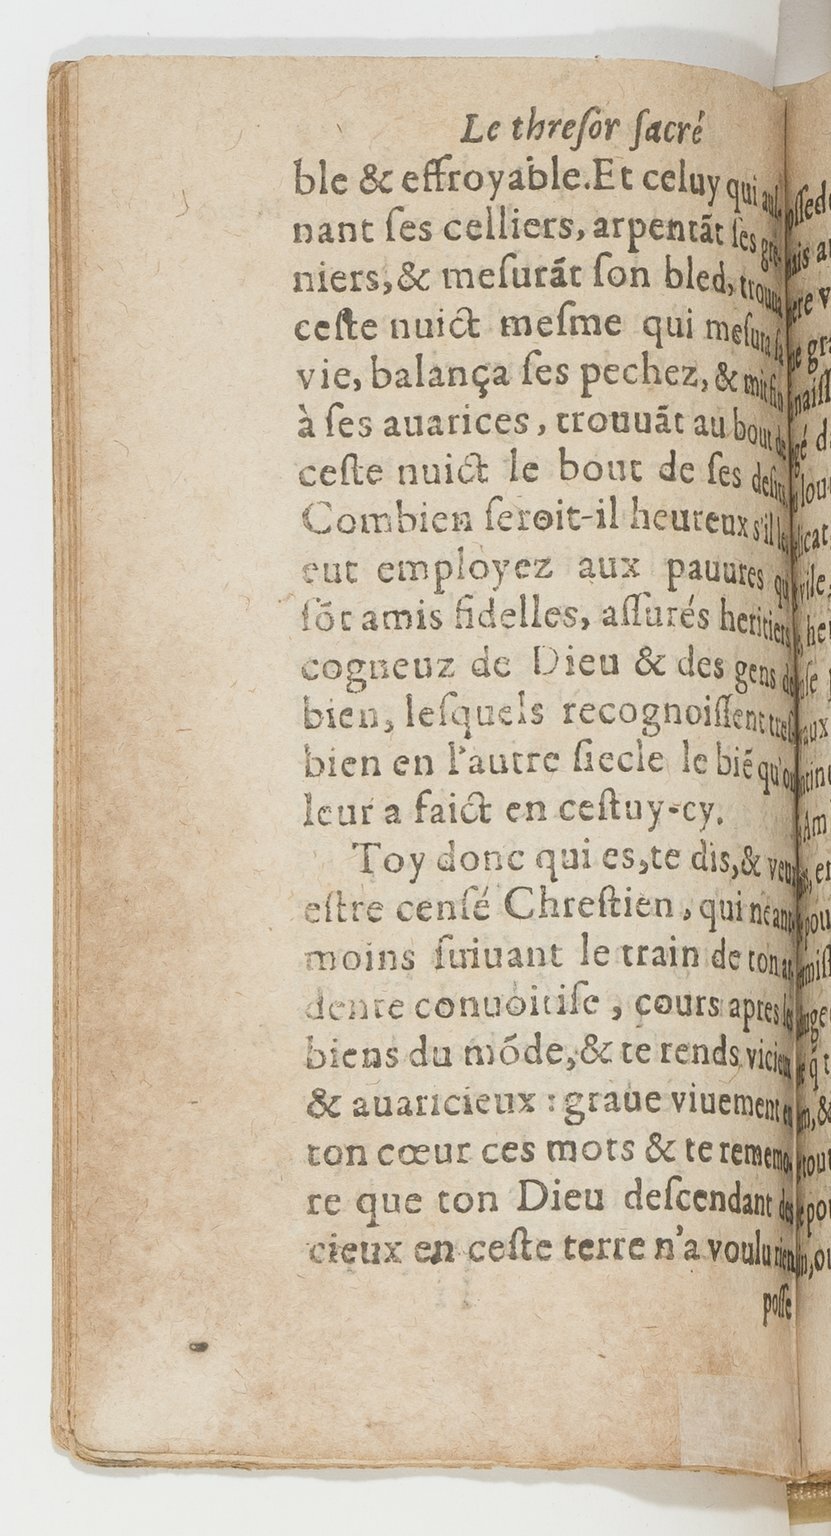 Le threſor ſacré
ble & effroyable. Et celuy qui
nant ſes celliers, arpentãt ſes
niers, & meſurãt ſon bled, trouua
ceſte nuict meſme qui meſura ſa
vie, balança ſes pechez, & mit fin
à ſes auarices, trouuãt au bout de
ceſte nuict le bout de ſes deſirs,
Combien ſeroit-il heureux s'il les
eut employez aux pauures qui
ſõt amis fidelles, aſſurés heritiers,
cogneuz de Dieu & des gens de
bien, leſquels recognoiſſent treſ
bien en l'autre ſiecle le biẽ qu'on
leur a faict en ceſtuy-cy.
Toy donc qui es, te dis, & veux
eſtre cenſé Chreſtien, qui neant
moins ſuiuant le train de ton ar
dente conuoitiſe, cours apres les
biens du mõde, & te rends vicieux
& auaricieux : graue viuement en
ton cœur ces mots & te rememo
re que ton Dieu deſcendant des
cieux en ceſte terre n'a voulu rien
poſſe